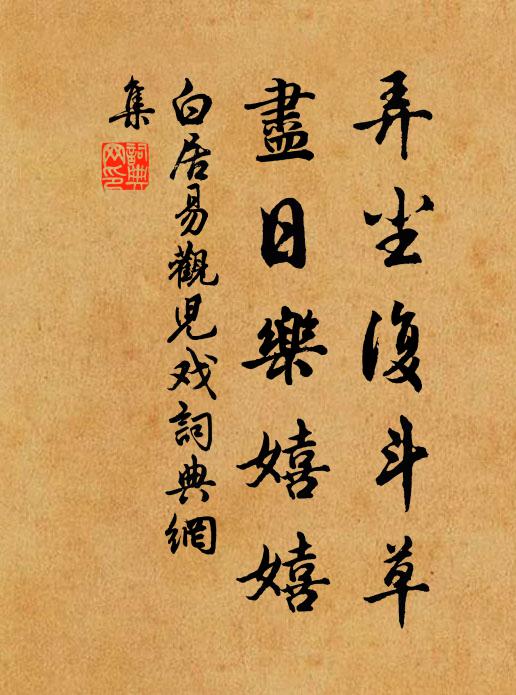 弄尘復斗草
盡日樂嬉嬉
白居易觀児戏詞典網
集
詞典網印